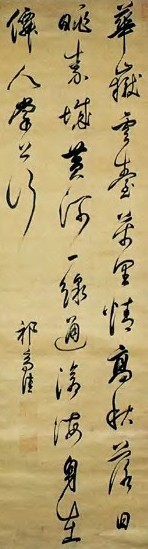 華嶽雲臺萬里情高秋落日
眺秦城黃河一線通滄海身在
僊人掌上行
祁豸佳